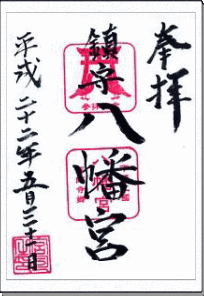 奉拝
鎮守八幡宮
平成二十二年五月三十一日